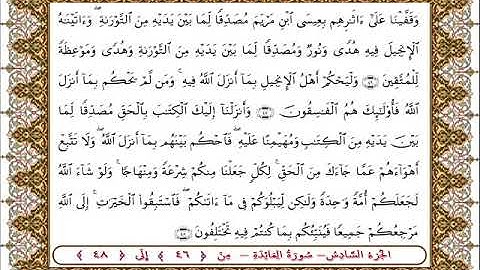 وَقَفَّيْنَا عَلَىٰٓ ءَاثَٰرِهِم بِعِيسَى ٱبْنِ مَرْيَمَ مُصَدِّقًا لِّمَا بَيْنَ يَدَيْهِ مِنَ ٱلتَّوْرَىٰةِ ۖ وَءَاتَيْنَٰهُ
ٱلْإِنجِيلَ فِيهِ هُدًى وَنُورٌ وَمُصَدِّقًا لِّمَا بَيْنَ يَدَيْهِ مِنَ ٱلتَّوْرَىٰةِ وَهُدًى وَمَوْعِظَةً
لِّلْمُتَّقِينَ ٤٦ وَلْيَحْكُمْ أَهْلُ ٱلْإِنجِيلِ بِمَآ أَنزَلَ ٱللَّهُ فِيهِ ۚ وَمَن لَّمْ يَحْكُم بِمَآ أَنزَلَ
ٱللَّهُ فَأُو۟لَٰٓئِكَ هُمُ ٱلْفَٰسِقُونَ ٤٧ وَأَنزَلْنَآ إِلَيْكَ ٱلْكِتَٰبَ بِٱلْحَقِّ مُصَدِّقًا لِّمَا
بَيْنَ يَدَيْهِ مِنَ ٱلْكِتَٰبِ وَمُهَيْمِنًا عَلَيْهِ ۖ فَٱحْكُم بَيْنَهُم بِمَآ أَنزَلَ ٱللَّهُ ۖ وَلَا تَتَّبِعْ
أَهْوَآءَهُمْ عَمَّا جَآءَكَ مِنَ ٱلْحَقِّ ۚ لِكُلٍّ جَعَلْنَا مِنكُمْ شِرْعَةً وَمِنْهَاجًا ۚ وَلَوْ شَآءَ ٱللَّهُ
لَجَعَلَكُمْ أُمَّةً وَٰحِدَةً وَلَٰكِن لِّيَبْلُوَكُمْ فِى مَآ ءَاتَىٰكُمْ ۖ فَٱسْتَبِقُوا۟ ٱلْخَيْرَٰتِ ۚ إِلَى ٱللَّهِ
مَرْجِعُكُمْ جَمِيعًا فَيُنَبِّئُكُم بِمَا كُنتُمْ فِيهِ تَخْتَلِفُونَ ٤٨
الجزء السادس - سورة المائدة - من ﴿ ٤٦ ﴾ إلى ﴿ ٤٨ ﴾